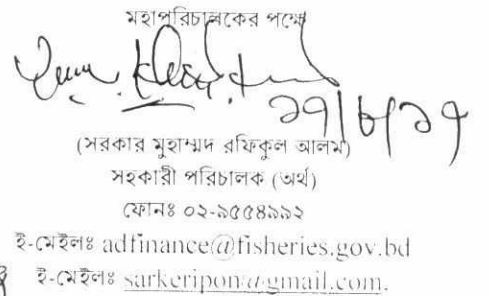 মহাপরিচালকের পক্ষে
২৭/৮/১৭
(সরকার মুহাম্মদ রফিকুল আলম)
সহকারী পরিচালক (অর্থ)
ফোনঃ ০২-৯৫৫৪৯৯২
ই-মেইলঃ adfinance@fisheries.gov.bd
ই-মেইলঃ sarkeripon@gmail.com.